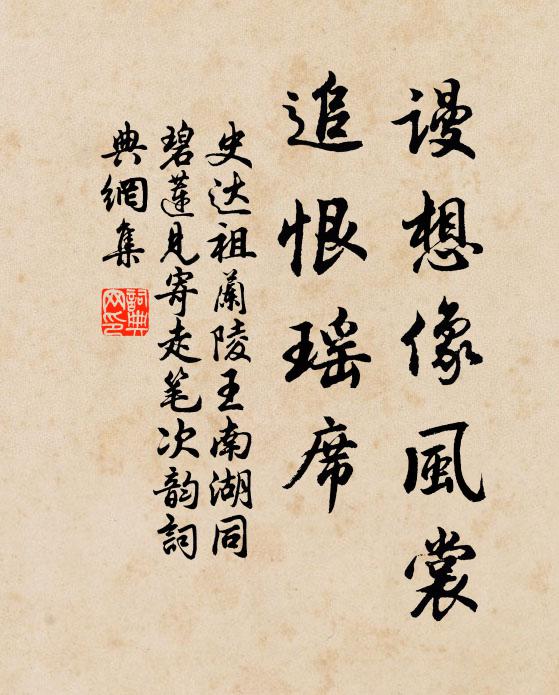 谩想像風裳
追恨瑶席
史达祖蘭陵王南湖同
碧蓮見寄走笔次韵詞
典網集
詞典
网印